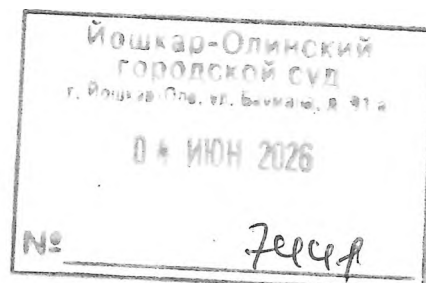 Йошкар-Олинский
городской суд
г. Йошкар-Ола, ул. Баумана, д. 91 а
0 ИЮН 2026
№